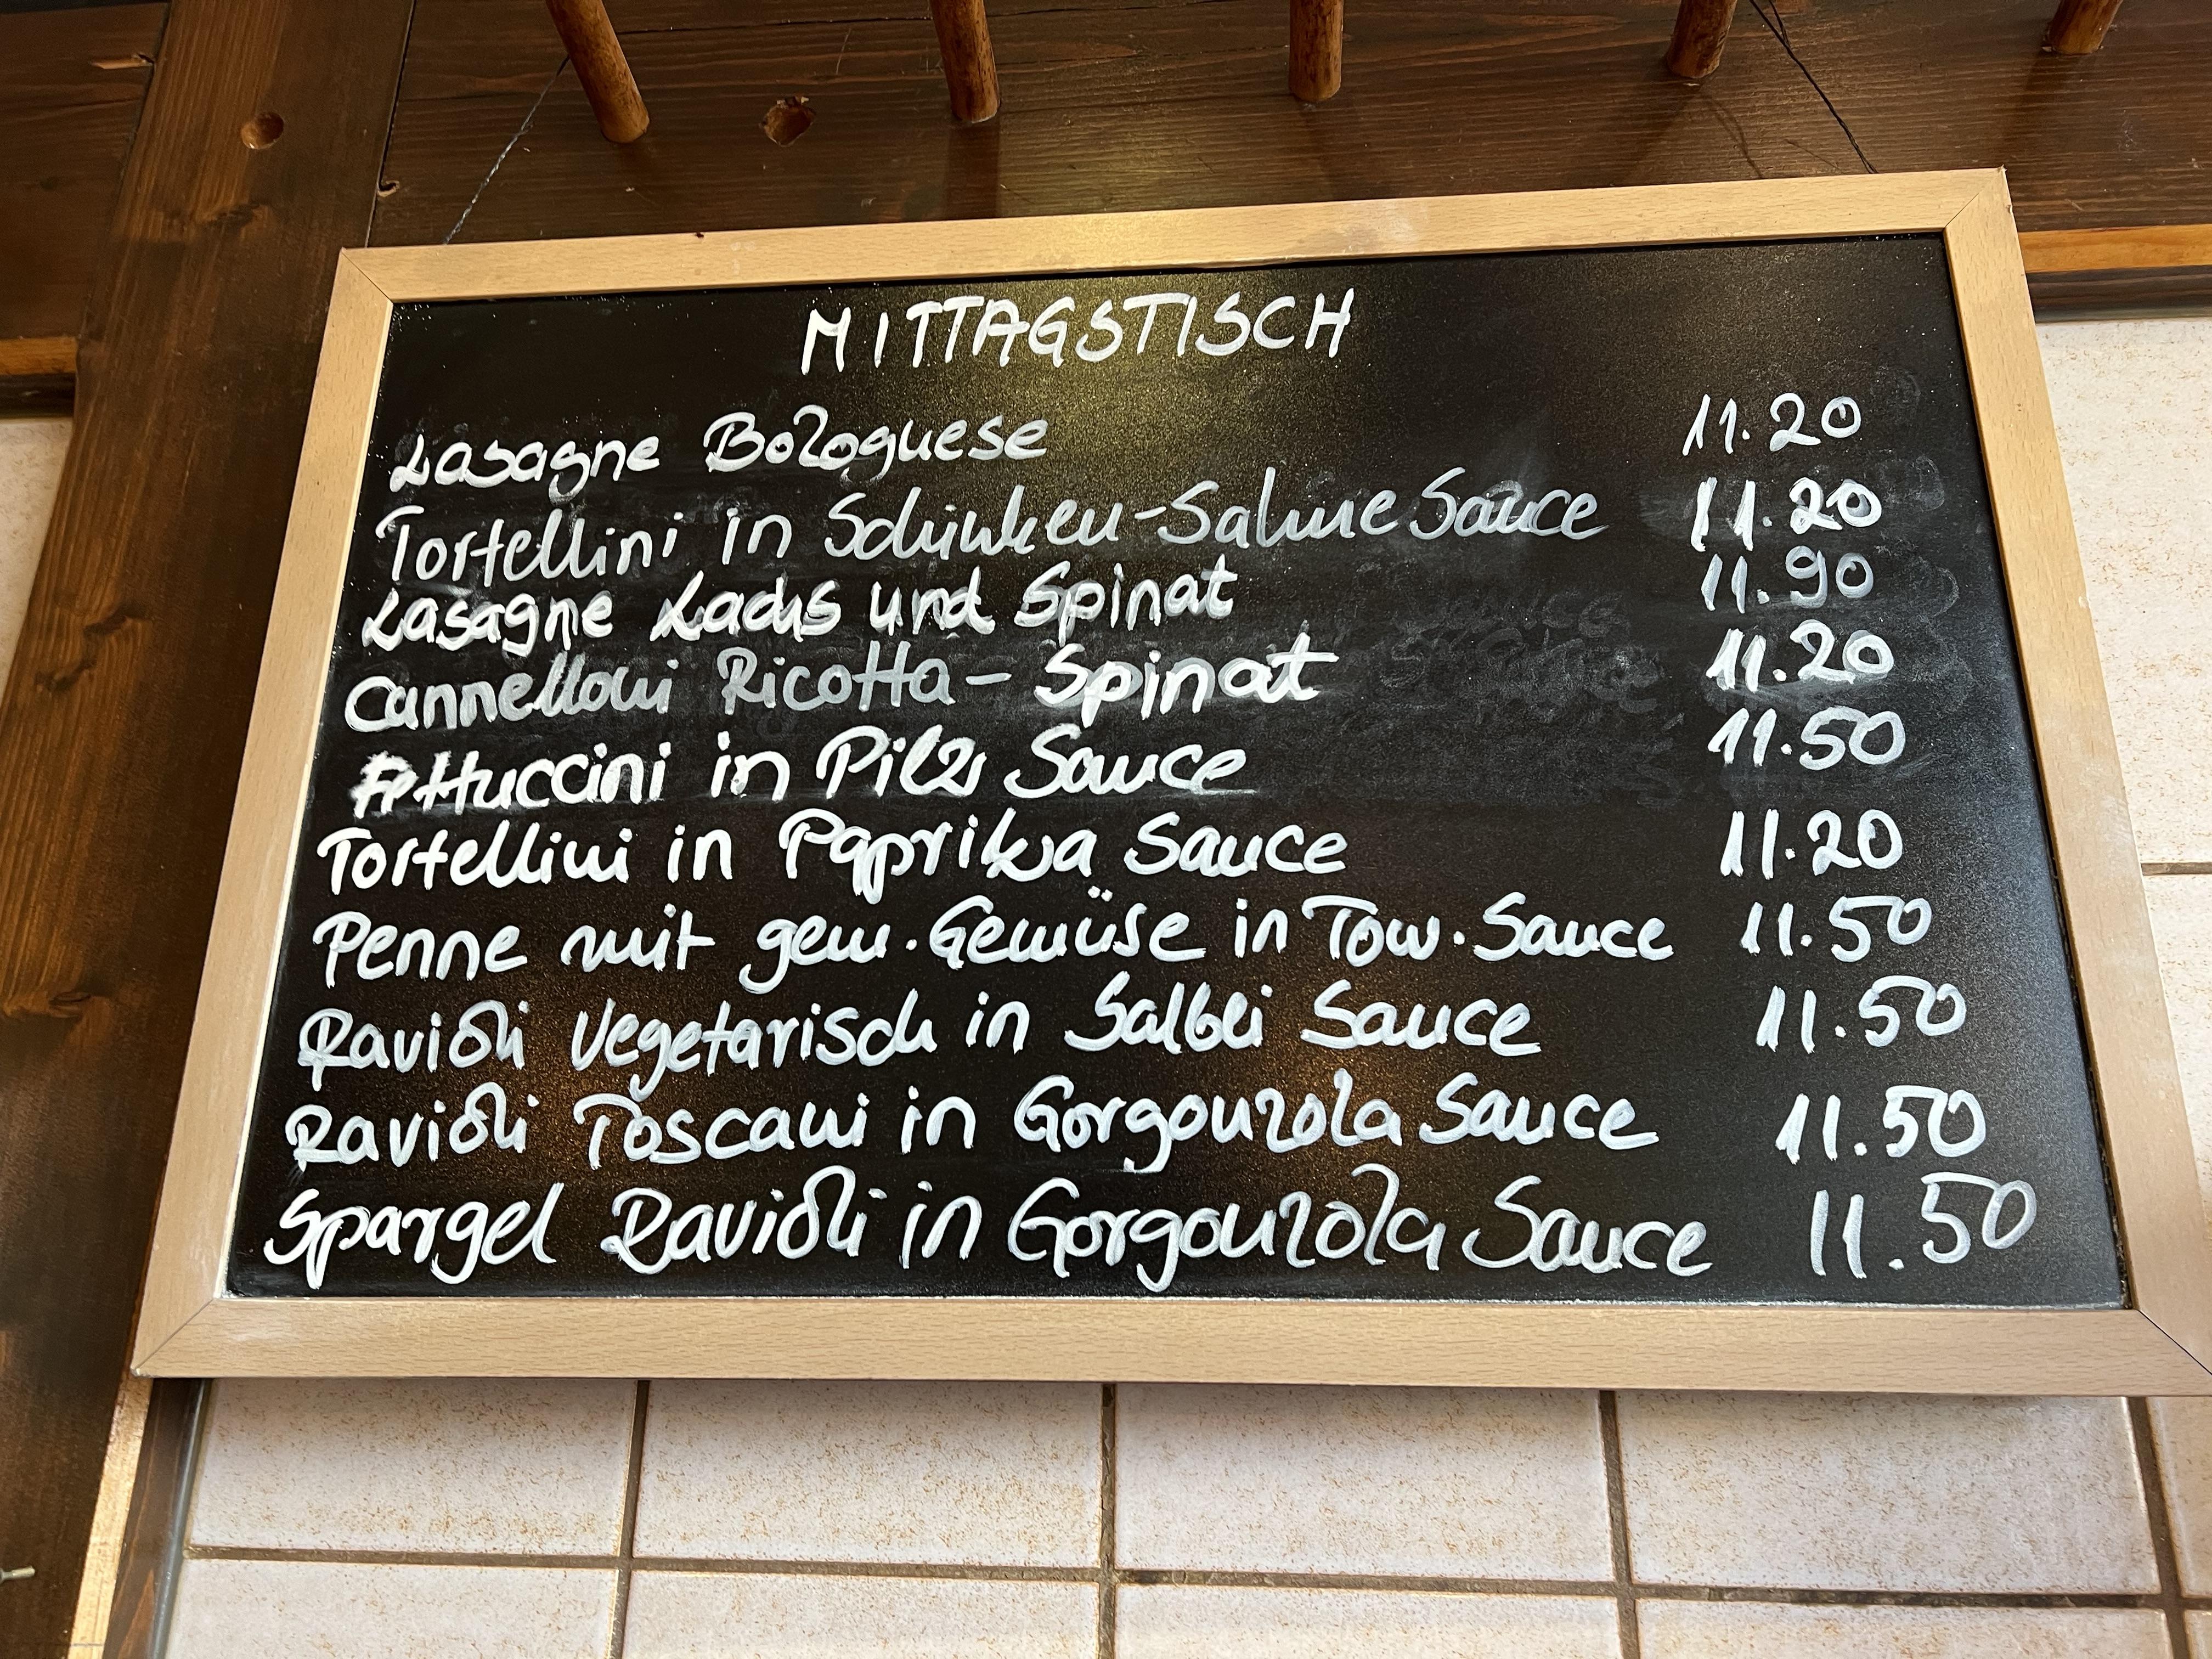 MITTAGSTISCH
Lasagne Bolognese 11.20
Tortellini in Schinken-Sahne Sauce 11.20
Lasagne Lachs und Spinat 11.90
Cannelloni Ricotta - Spinat 11.20
Fettuccini in Pilz Sauce 11.50
Tortellini in Paprika Sauce 11.20
Penne mit gem. Gemüse in Tom. Sauce 11.50
Ravioli Vegetarisch in Salbei Sauce 11.50
Ravioli Toscani in Gorgonzola Sauce 11.50
Spargel Ravioli in Gorgonzola Sauce 11.50